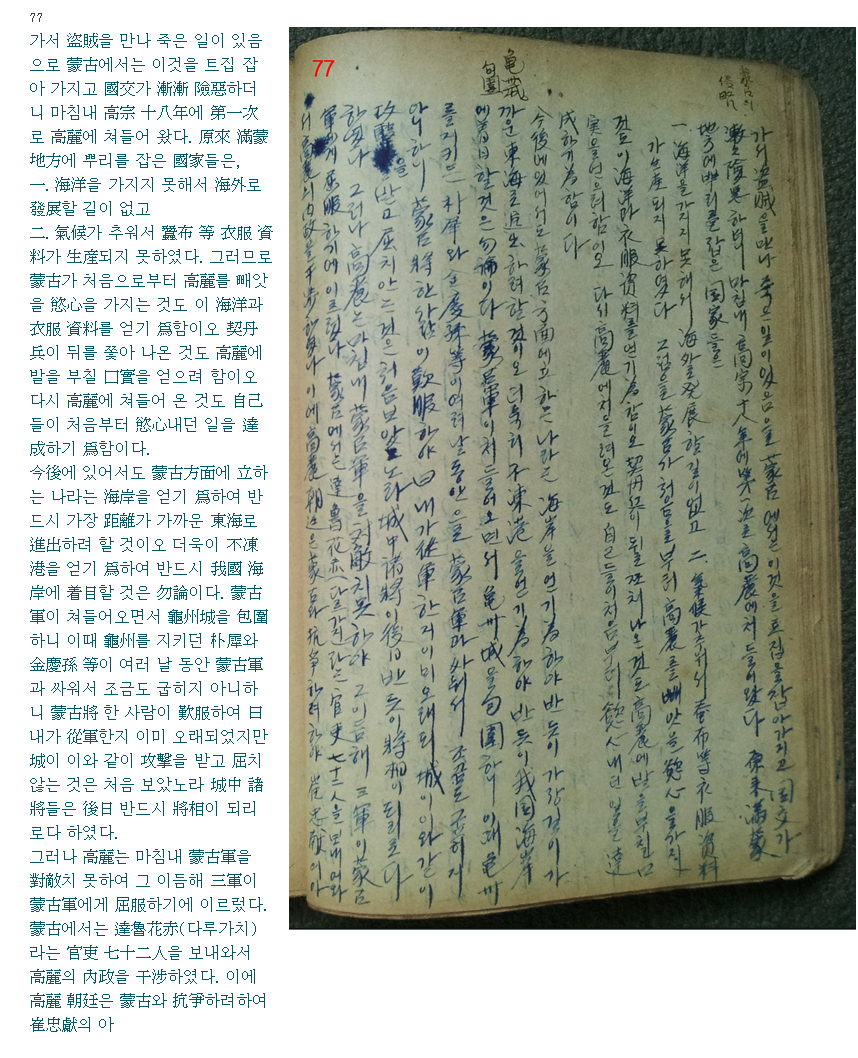 77
가서 盜賊을 만나 죽은 일이 있음
으로 蒙古에서는 이것을 트집 잡
아 가지고 國交가 漸漸 險惡하더
니 마침내 高宗 十八年에 第一次
로 高麗에 쳐들어 왔다. 原來 滿蒙
地方에 뿌리를 잡은 國家들은,
一. 海洋을 가지지 못해서 海外로
發展할 길이 없고
二. 氣候가 추워서 蠶布 等 衣服 資
料가 生産되지 못하였다. 그러므로
蒙古가 처음으로부터 高麗를 빼앗
을 慾心을 가지는 것도 이 海洋과
衣服 資料를 얻기 爲함이오 契丹
兵이 뒤를 쫓아 나온 것도 高麗에
발을 부칠 口實을 얻으려 함이오
다시 高麗에 쳐들어 온 것도 自己
들이 처음부터 慾心내던 일을 達
成하기 爲함이다.
今後에 있어서도 蒙古方面에 立하
는 나라는 海岸을 얻기 爲하여 반
드시 가장 距離가 가까운 東海로
進出하려 할 것이오 더욱이 不凍
港을 얻기 爲하여 반드시 我國 海
岸에 着目할 것은 勿論이다. 蒙古
軍이 쳐들어오면서 龜州城을 包圍
하니 이때 龜州를 지키던 朴犀와
金慶孫 等이 여러 날 동안 蒙古軍
과 싸워서 조금도 굽히지 아니하
니 蒙古將 한 사람이 歎服하여 曰
내가 從軍한지 이미 오래되었지만
城이 이와 같이 攻擊을 받고 屈치
않는 것은 처음 보았노라 城中 諸
將들은 後日 반드시 將相이 되리
로다 하였다.
그러나 高麗는 마침내 蒙古軍을
對敵치 못하여 그 이듬해 三軍이
蒙古軍에게 屈服하기에 이르렀다.
蒙古에서는 達魯花赤(다루가치)
라는 官吏 七十二人을 보내와서
高麗의 內政을 干涉하였다. 이에
高麗 朝廷은 蒙古와 抗爭하려하여
崔忠獻의 아
77
蒙古의
侵略
가서 盜賊을 만나 죽은 일이 있음으로 蒙古에서는 이것을 트집을 잡아가지고 国交가
漸々 險惡하더니 마침내 高宗十八年에 第一次로 高麗에 처들어왔다 原來 滿蒙
地方에 뿌리를 잡은 国家들은
一 海洋을 가지지 못해서 海外로 發展할 길이 없고 二. 氣候가 추워서 蚕布等 衣服資料
가 生産되지 못하였다 그럼으로 蒙古가 처음으로부터 高麗를 빼앗을 慾心을 가지
것도 이 海洋과 衣服資料를 얻기 爲함이오 契丹兵이 뒤를 쫓차 나온 것도 高麗에 발을 부칠 口
実을 얻으려 함이오 다시 高麗에 처들어 온 것도 自己들이 처음부터 慾心내던 일을 達
成하기 爲함이다
今後에 있어서도 蒙古方面에 立하는 나라는 海岸을 얻기 爲하야 반듯이 가장 距離가
까운 東海로 進出하려 할 것이오 더욱히 不凍港을 얻기 爲하야 반듯이 我国海岸
龜城
包圍
에 着目할 것은 勿論이다 蒙古軍이 처들어오면서 龜州城을 包圍하니 이때 龜州
를 지키든 朴犀와 金慶孫等이 여러 날 동안을 蒙古軍과 싸워서 조금도 굽히지
아니하니 蒙古將 한 사람이 歎服하야 曰 내가 從軍한지 이미 오래되 城이 이와 같이
攻擊을 받고 屈치 안는 것은 처음 보앗노라 城中諸將이 後日 반듯이 將相이 되리로다
하였다 그러나 高麗는 마침내 蒙古軍을 対敵치 못하야 그 이듬해 三軍이 蒙古
軍에게 屈服하기에 이르렀다 蒙古에서는 達魯花赤(다루가치)라는 官吏 七十二人을 보내여와
서 高麗의 內政을 干涉하였다 이에 高麗朝廷은 蒙古와 抗爭하려하야 崔忠獻이 아